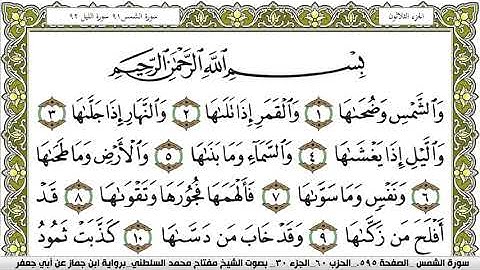 الجزء الثلاثون سورة الشمس ٩١ سورة الليل ٩٢
بِسْمِ اللَّهِ الرَّحْمَٰنِ الرَّحِيمِ
وَالشَّمْسِ وَضُحَىٰهَا ١ وَالْقَمَرِ إِذَا تَلَىٰهَا ٢ وَالنَّهَارِ إِذَا جَلَّىٰهَا ٣
وَالَّيْلِ إِذَا يَغْشَىٰهَا ٤ وَالسَّمَآءِ وَمَا بَنَىٰهَا ٥ وَالْأَرْضِ وَمَا طَحَىٰهَا
٦ وَنَفْسٍ وَمَا سَوَّىٰهَا ٧ فَأَلْهَمَهَا فُجُورَهَا وَتَقْوَىٰهَا ٨ قَدْ
أَفْلَحَ مَن زَكَّىٰهَا ٩ وَقَدْ خَابَ مَن دَسَّىٰهَا ١٠ كَذَّبَتْ ثَمُودُ
سورة الشمس_ الصفحة ٥٩٥_ الحزب ٦٠_ الجزء ٣٠_ بصوت الشيخ مفتاح محمد السلطني_ برواية ابن جماز عن أبي جعفر